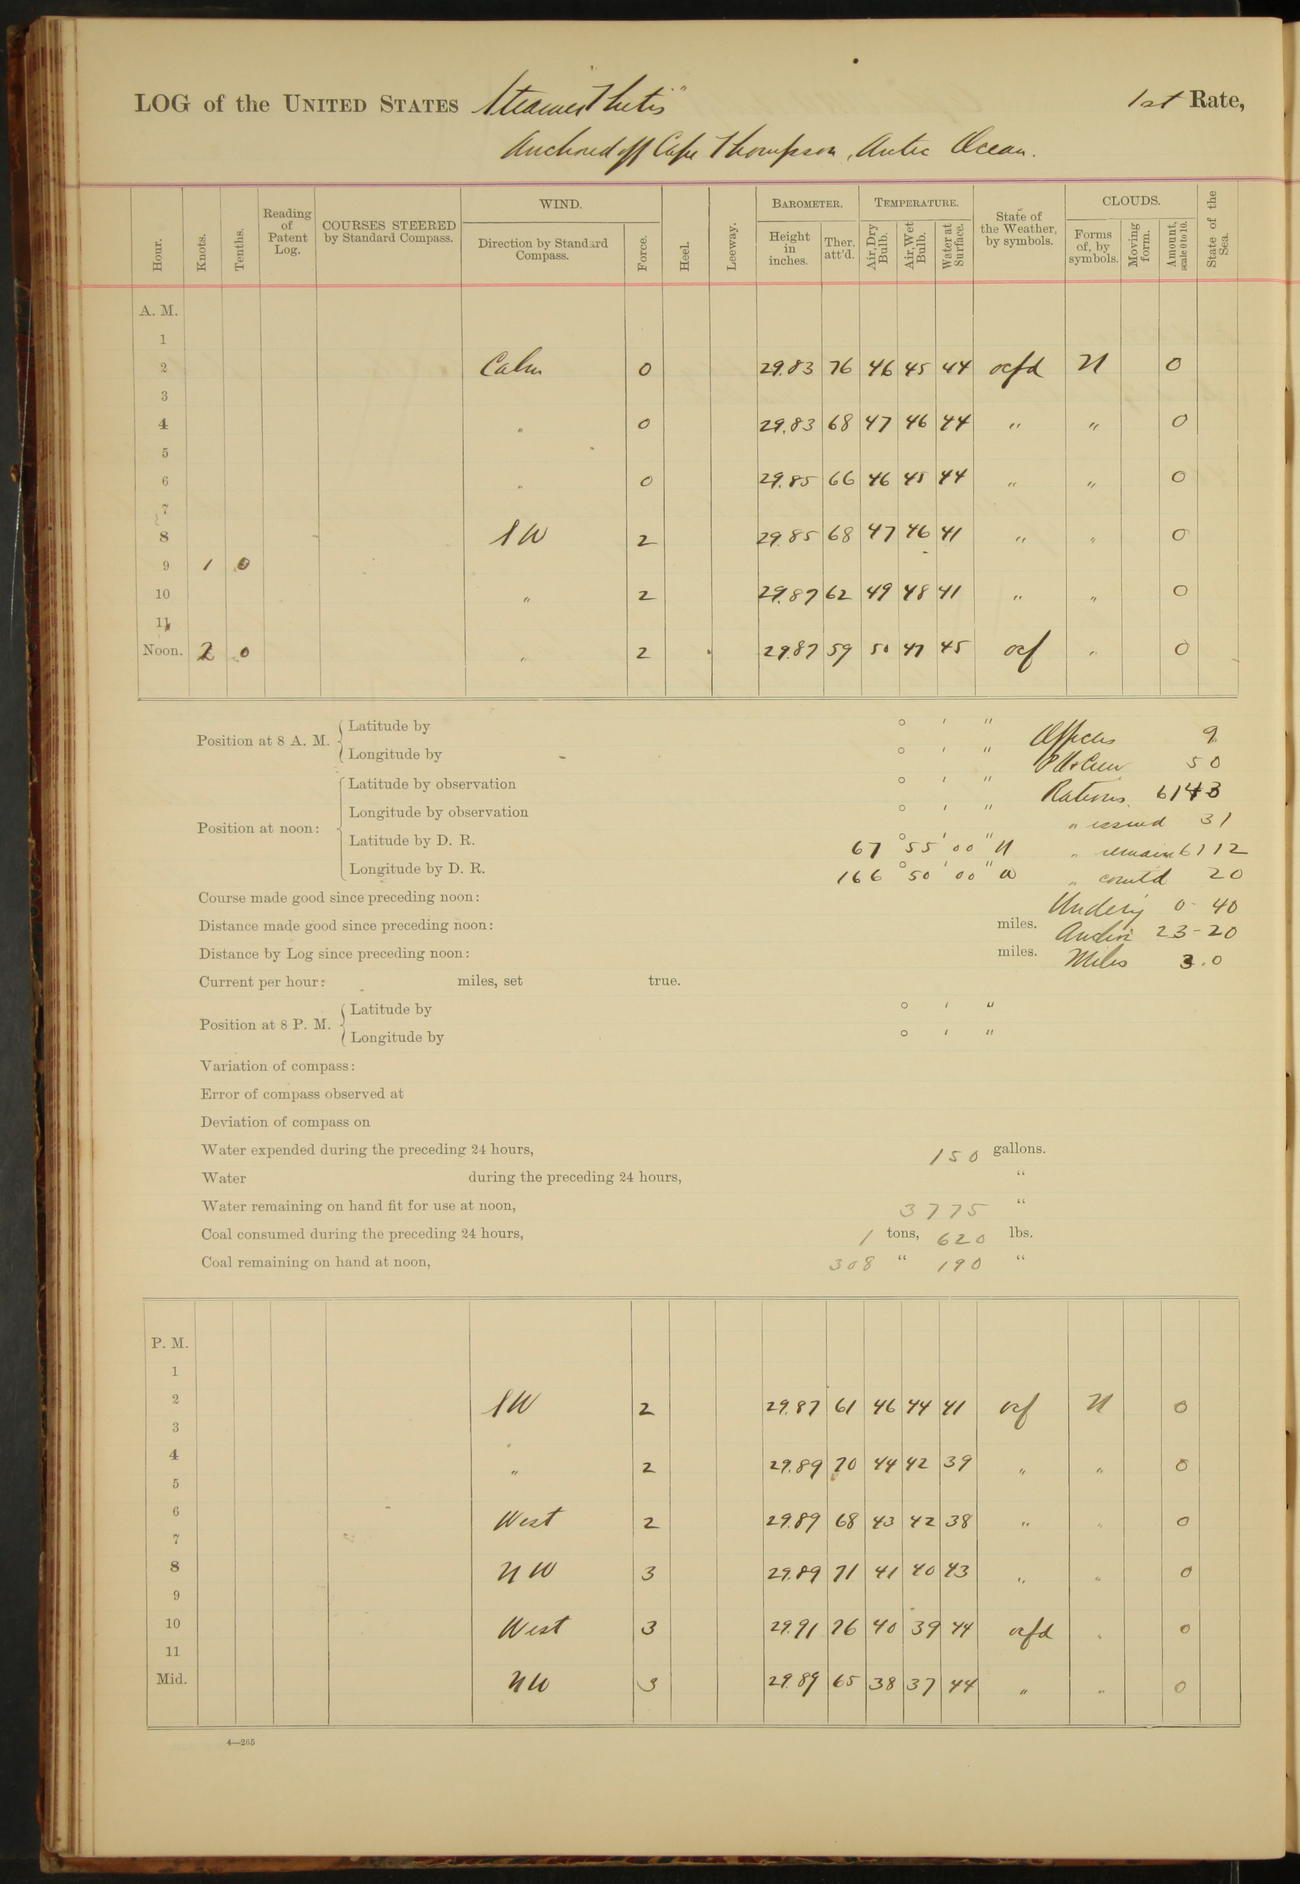 LOG of the UNITED STATES Steamer "Thetis" 1st Rate,
Anchored off Cape Thompson, Arctic Ocean.
Hour. Knots. Tenths. Reading of Patent Log. COURSES STEERED by Standard Compass. WIND. Direction by Standard Compass. Force. Heel. Leeway. BAROMETER. Height in inches. Ther. att'd. TEMPERATURE. Air, Dry Bulb. Air, Wet Bulb. Water at Surface. State of the Weather, by symbols. CLOUDS. Forms of, by symbols. Moving form. Amount, scale 0 to 10. State of the Sea.
A. M.
1
2 Calm 0 29.83 76 46 45 44 ocfd N 0
3
4 " 0 29.83 68 47 46 44 " " 0
5
6 " 0 29.85 66 46 45 44 " " 0
7
8 SW 2 29.85 68 47 46 41 " " 0
9 1 0
10 " 2 29.87 62 49 48 41 " " 0
11
Noon. 2 0 " 2 29.87 59 50 47 45 ocf " 0
Position at 8 A. M. Latitude by ° ' " Officers 9
Longitude by ° ' " P.O. & Crew 50
Position at noon: Latitude by observation ° ' " Rations 6143
Longitude by observation ° ' " " issued 31
Latitude by D. R. 67 ° 55 ' 00 " N " remain 6112
Longitude by D. R. 166 ° 50 ' 00 " W " comut'd 20
Course made good since preceding noon: Underw'y 0-40
Distance made good since preceding noon: miles. Anchor 23-20
Distance by Log since preceding noon: miles. Miles 3.0
Current per hour: miles, set true.
Position at 8 P. M. Latitude by ° ' "
Longitude by ° ' "
Variation of compass:
Error of compass observed at
Deviation of compass on
Water expended during the preceding 24 hours, 150 gallons.
Water during the preceding 24 hours, "
Water remaining on hand fit for use at noon, 3775 "
Coal consumed during the preceding 24 hours, 1 tons, 620 lbs.
Coal remaining on hand at noon, 308 " 190 "
P. M.
1
2 SW 2 29.87 61 46 44 41 ocf N 0
3
4 " 2 29.89 70 44 42 39 " " 0
5
6 West 2 29.89 68 43 42 38 " " 0
7
8 NW 3 29.89 71 41 40 43 " " 0
9
10 West 3 29.91 76 40 39 44 ocfd " 0
11
Mid. NW 3 29.89 65 38 37 44 " " 0
4—265